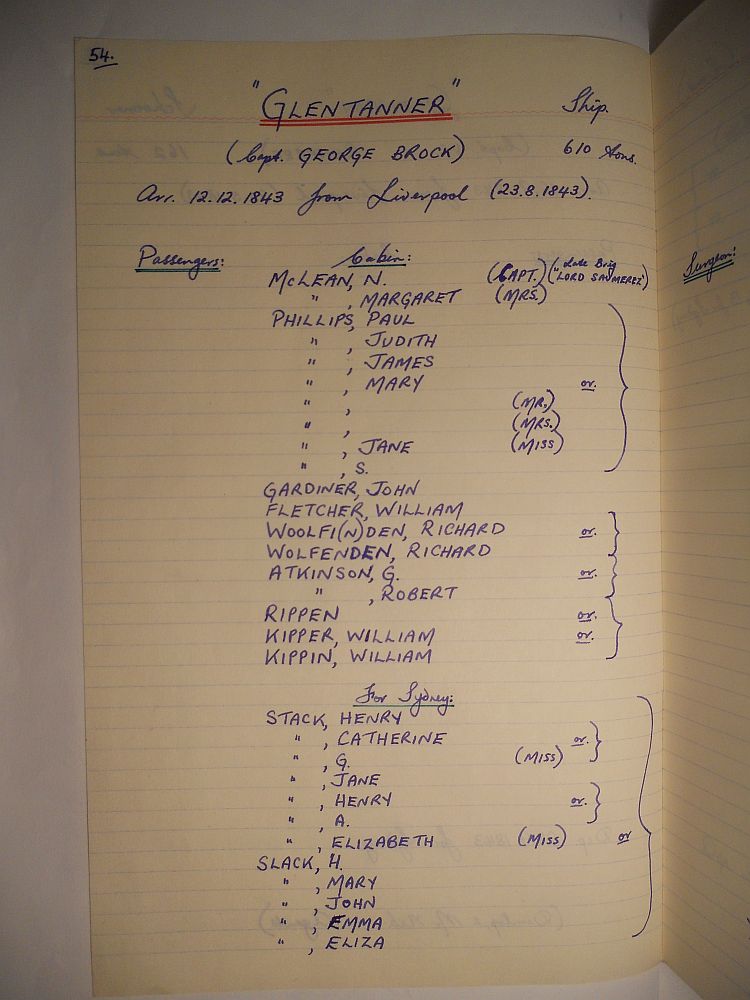 54.
"GLENTANNER" Ship.
(Capt. GEORGE BROCK) 610 tons.
Arr. 12.12.1843 from Liverpool (23.8.1843).
Passengers: Cabin: Surgeon:
McLEAN, N. (CAPT.) (Late Brig "LORD SAUMEREZ")
" , MARGARET (MRS.)
PHILLIPS, PAUL
" , JUDITH
" , JAMES
" , MARY or.
" , (MR.)
" , (MRS.)
" , JANE (MISS)
" , S.
GARDINER, JOHN
FLETCHER, WILLIAM
WOOLFI(N)DEN, RICHARD or.
WOLFENDEN, RICHARD
ATKINSON, G. or.
" , ROBERT
RIPPEN or.
KIPPER, WILLIAM or.
KIPPIN, WILLIAM
For Sydney:
STACK, HENRY
" , CATHERINE or.
" , G. (MISS)
" , JANE
" , HENRY or.
" , A.
" , ELIZABETH (MISS) or
SLACK, H.
" , MARY
" , JOHN
" , EMMA
" , ELIZA